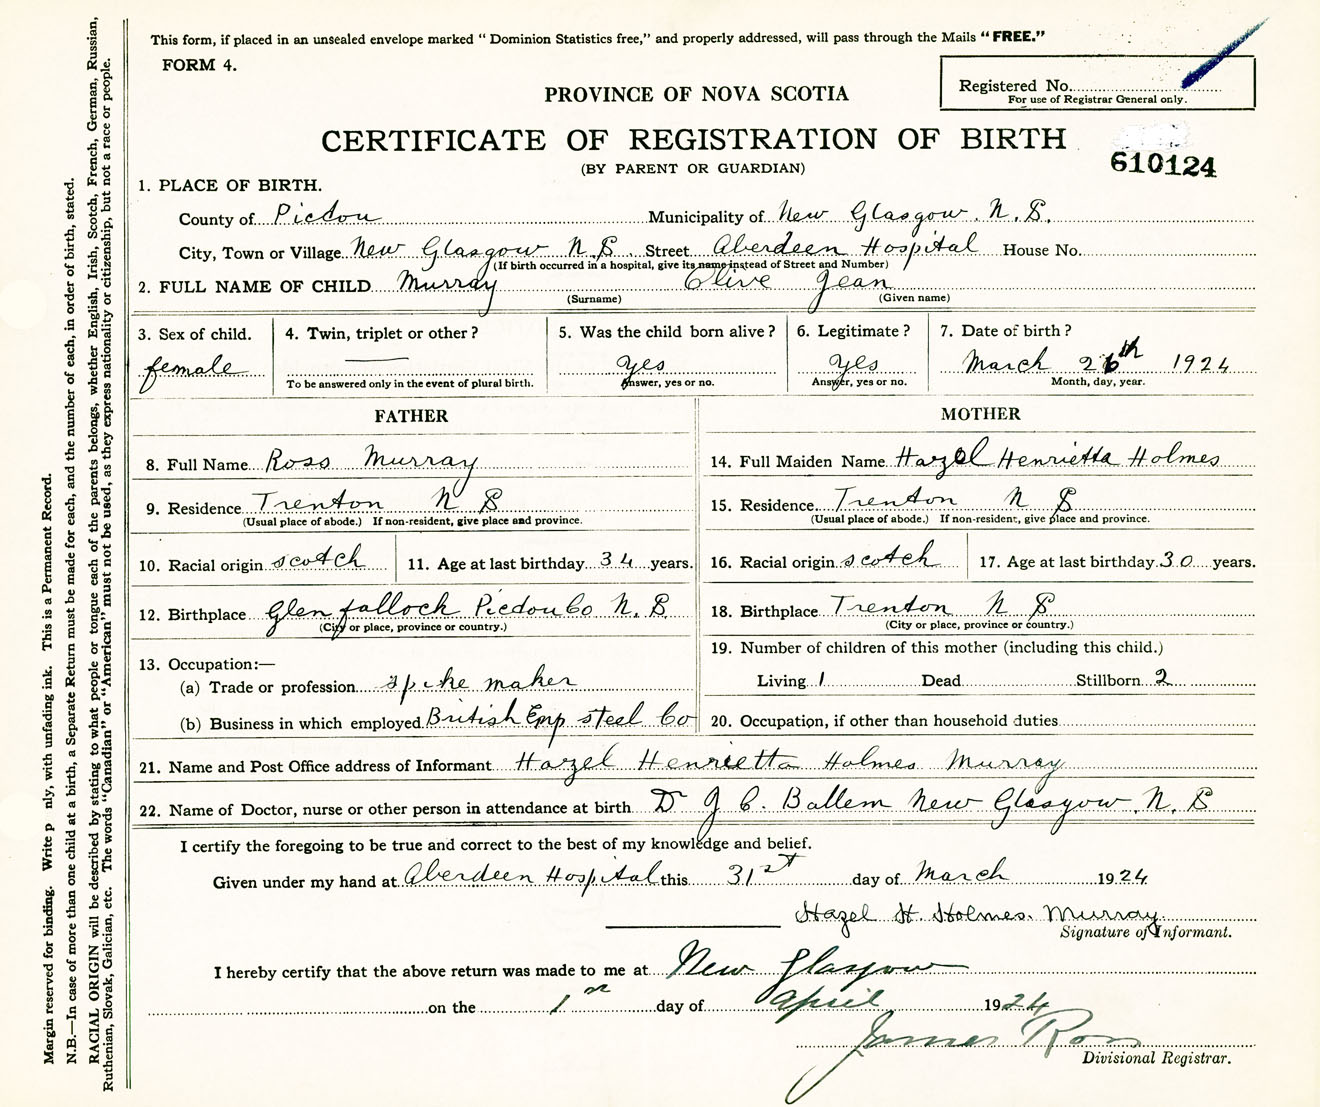 This form, if placed in an unsealed envelope marked “ Dominion Statistics free,” and properly addressed, will pass through the Mails “ FREE.”
FORM 4.
Registered No.
For use of Registrar General only.
PROVINCE OF NOVA SCOTIA
CERTIFICATE OF REGISTRATION OF BIRTH
(BY PARENT OR GUARDIAN)
610124
1. PLACE OF BIRTH.
County of Pictou Municipality of New Glasgow. N. S.
City, Town or Village New Glasgow N S Street Aberdeen Hospital House No.
(If birth occurred in a hospital, give its name instead of Street and Number)
2. FULL NAME OF CHILD Murray Olive Jean
(Surname) (Given name)
3. Sex of child. 4. Twin, triplet or other ? 5. Was the child born alive ? 6. Legitimate ? 7. Date of birth ?
female yes yes March 26th 1924
To be answered only in the event of plural birth. Answer, yes or no. Answer, yes or no. Month, day, year.
FATHER MOTHER
8. Full Name Ross Murray 14. Full Maiden Name Hazel Henrietta Holmes
9. Residence Trenton N S 15. Residence Trenton N S
(Usual place of abode.) If non-resident, give place and province. (Usual place of abode.) If non-resident, give place and province.
10. Racial origin scotch 11. Age at last birthday 34 years. 16. Racial origin scotch 17. Age at last birthday 30 years.
12. Birthplace Glenfalloch Pictou Co N. S. 18. Birthplace Trenton N S
(City or place, province or country.) (City or place, province or country.)
13. Occupation:— 19. Number of children of this mother (including this child.)
(a) Trade or profession spike maker Living 1 Dead Stillborn 2
(b) Business in which employed British Emp steel Co 20. Occupation, if other than household duties
21. Name and Post Office address of Informant Hazel Henrietta Holmes Murray
22. Name of Doctor, nurse or other person in attendance at birth Dr J C. Ballem New Glasgow. N. S
I certify the foregoing to be true and correct to the best of my knowledge and belief.
Given under my hand at Aberdeen Hospital this 31st day of March 1924
Hazel H. Holmes. Murray
Signature of Informant.
I hereby certify that the above return was made to me at New Glasgow
on the 1st day of April 1924
James Ross
Divisional Registrar.
Margin reserved for binding. Write p nly, with unfading ink. This is a Permanent Record.
N.B.—In case of more than one child at a birth, a Separate Return must be made for each, and the number of each, in order of birth, stated.
RACIAL ORIGIN will be described by stating to what people or tongue each of the parents belongs, whether English, Irish, Scotch, French, German, Russian,
Ruthenian, Slovak, Galician, etc. The words “Canadian” or “American” must not be used, as they express nationality or citizenship, but not a race or people.